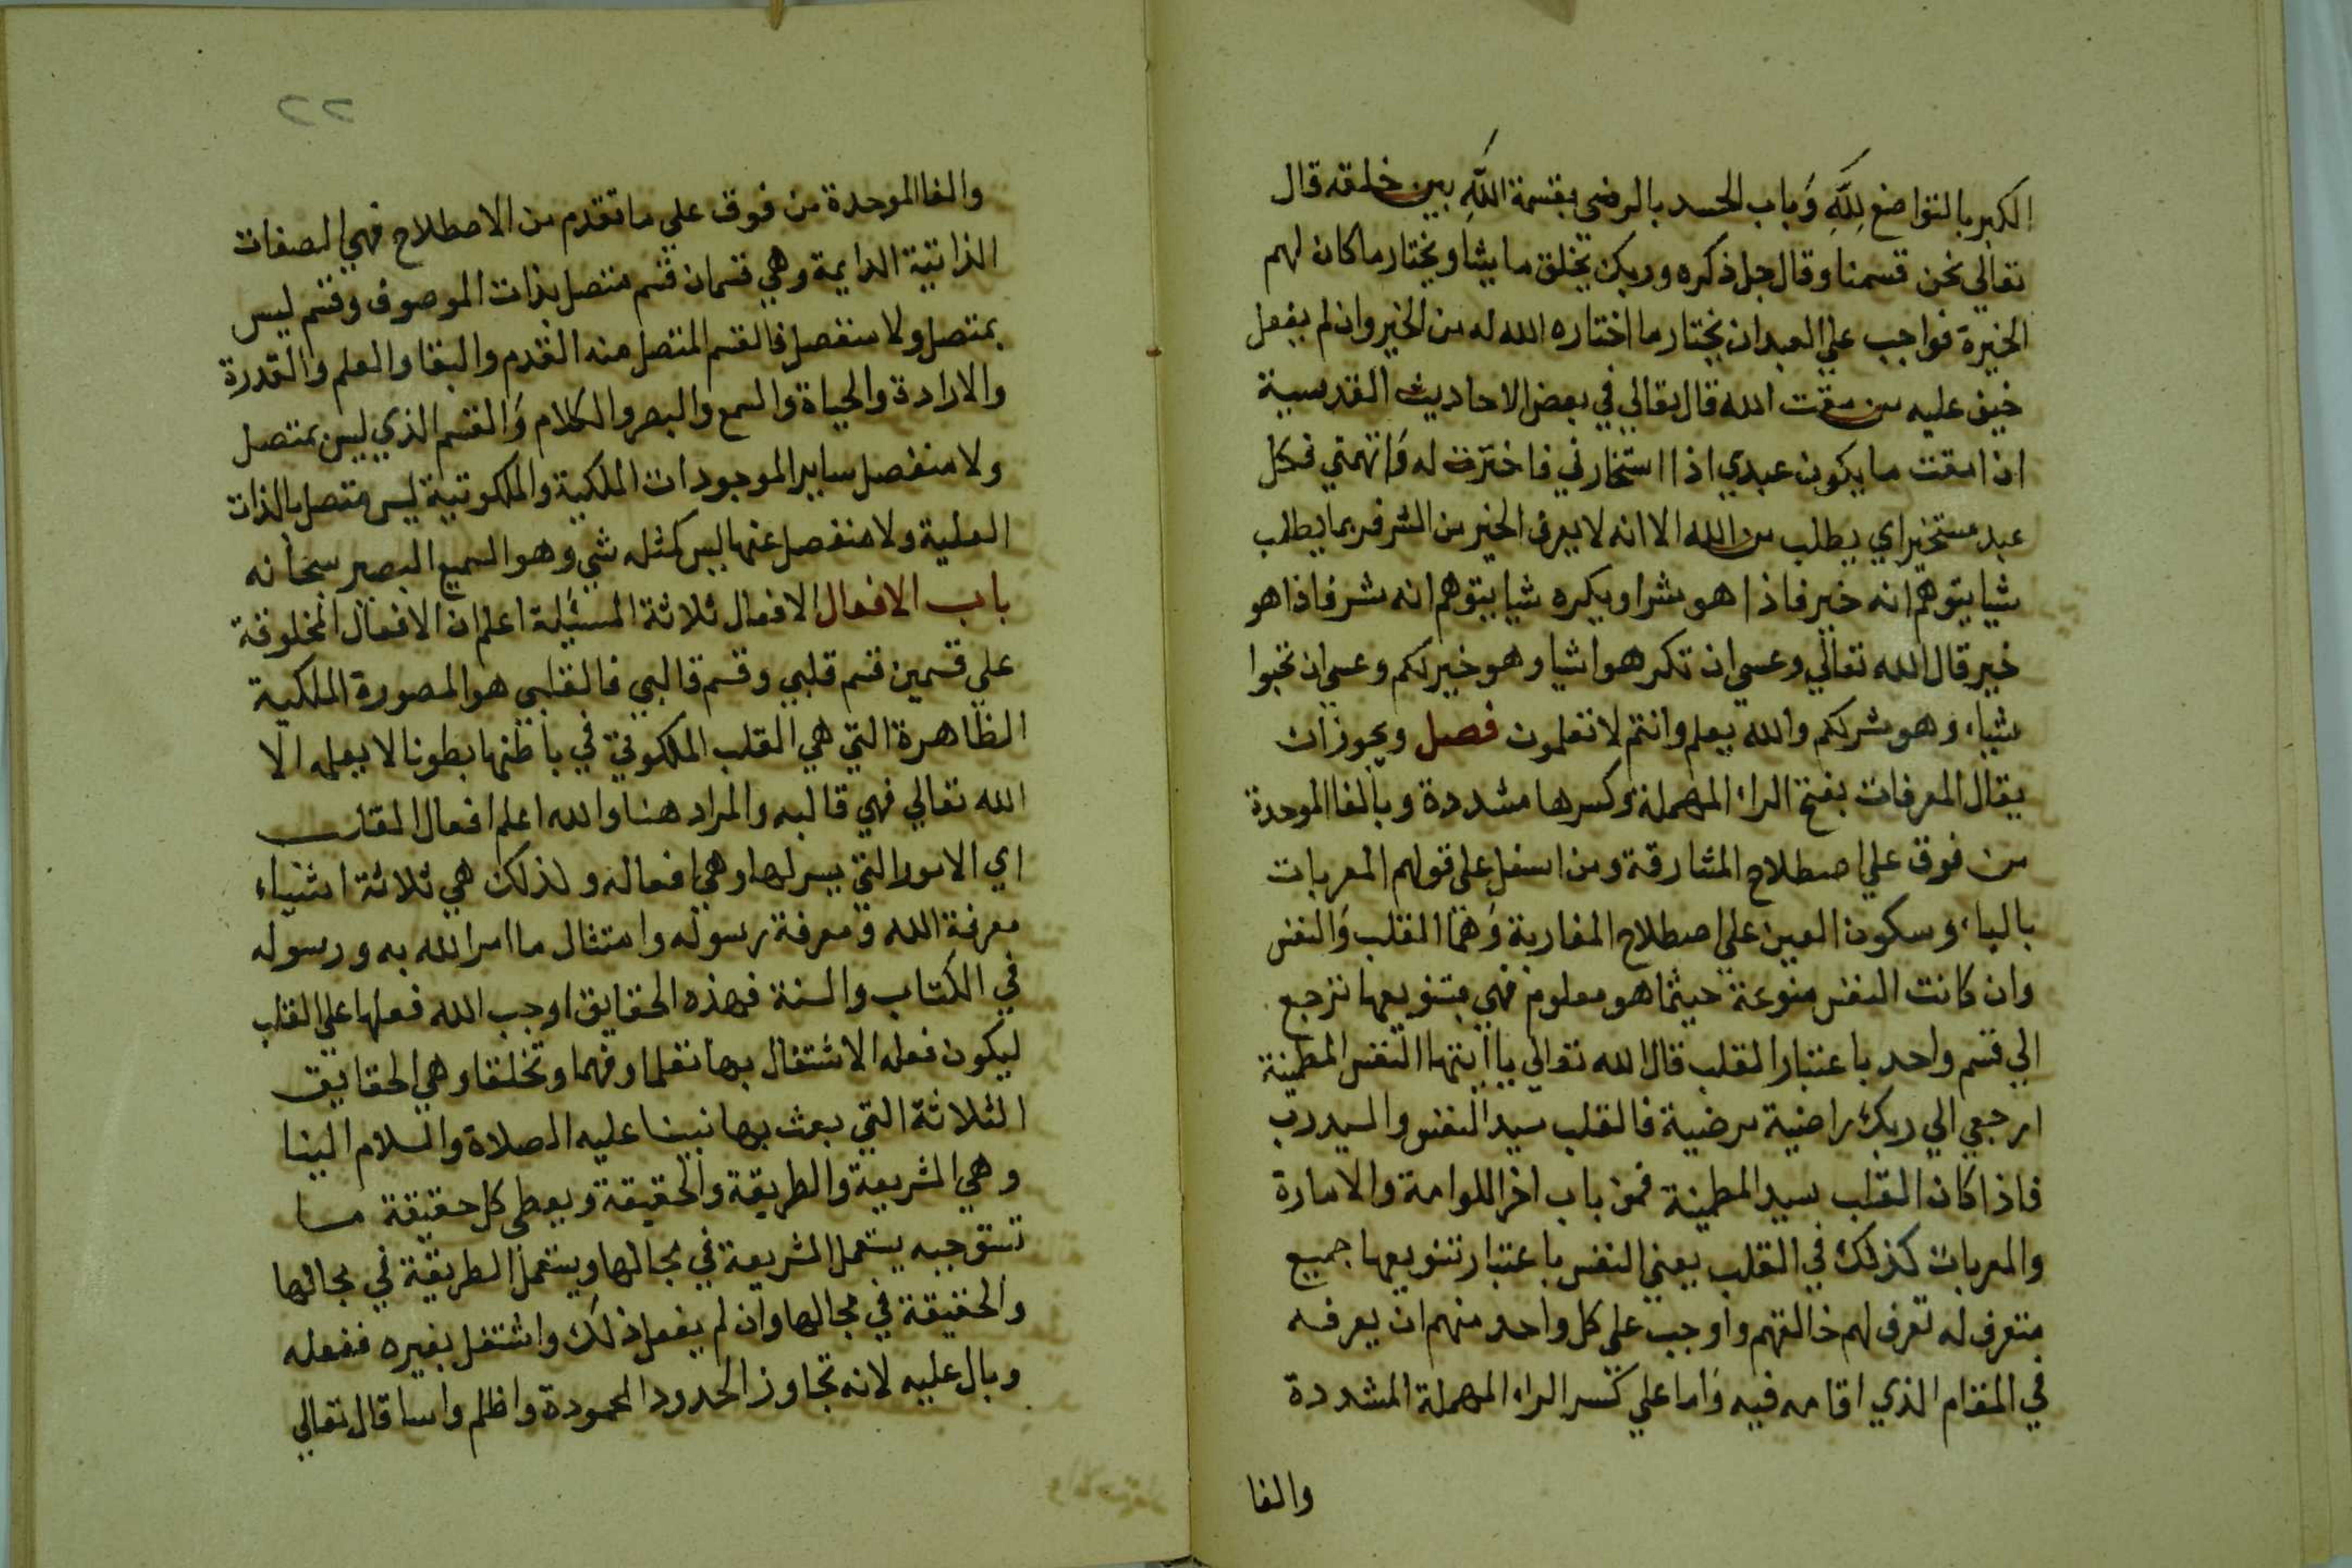 الكبر بالتواضع لله وباب الحسد بالرضى بقسمة الله بين خلقه قال
تعالي نحن قسمنا وقال جل ذكره وربك يخلق ما يشا ويختار ما كان لهم
الخيرة فواجب علي العبد ان يختار ما اختاره الله له من الخير وان لم يفعل
خيف عليه من مقت الله قال تعالي في بعض الاحاديث القدسية
ان امقت ما يكون عبدي اذا استخارني فاخترت له واتهمني فكل
عبد مستخير اي يطلب من الله الا انه لا يعرف الخير من الشر فربما يطلب
شيا يتوهم انه خير فاذا هو شر او يكره شيا يتوهم انه شر فاذا هو
خير قال الله تعالي وعسى ان تكرهوا شيا وهو خير لكم وعسى ان تحبوا
شياء وهو شر لكم والله يعلم وانتم لا تعلمون فصل ويجوز ان
يقال المعرفات بفتح الراء المهملة وكسرها مشددة وبالفا الموحدة
من فوق علي اصطلاح المشارقة ومن اسفل على قولهم المعربات
بالباء وسكون العين على اصطلاح المغاربة وهما القلب والنفس
وان كانت النفس منوعة حيثما هو معلوم فهي بتنويعها ترجع
الي قسم واحد باعتبار القلب قال الله تعالي ياايتها النفس المطمينة
ارجعي الي ربك راضية مرضية فالقلب سيد النفس والسيد رب
فاذا كان القلب سيد المطمينة فمن باب اخر اللوامة والامارة
والمعربات كذلك في القلب يعني النفس باعتبار تنويعها جميع
متعرف له تعرف لهم خالقهم واوجب على كل واحد منهم ان يعرفه
في المقام الذي اقامه فيه واما علي كسر الراء المهملة المشددة
والفا
٢٢
والفا الموحدة من فوق علي ما تقدم من الاصطلاح فهي الصفات
الذاتية الدايمة وهي قسمان قسم متصل بذات الموصوف وقسم ليس
بمتصل ولا منفصل فالقسم المتصل منه القدم والبقا والعلم والقدرة
والارادة والحياة والسمع والبصر والكلام والقسم الذي ليس بمتصل
ولا منفصل ساير الموجودات الملكية والملكوتية ليس متصل بالذات
العلية ولا منفصل عنها ليس كمثله شي وهو السميع البصير سبحانه
باب الافعال الافعال ثلاثة المسئلة اعلم ان الافعال المخلوقة
علي قسمين قسم قلبي وقسم قالبي فالقلبي هو الصورة الملكية
الظاهرة التي هي القلب الملكوتي في باطنها بطونا لا يعلمه الا
الله تعالي فهي قالبه والمراد هنا والله اعلم افعال القلب
اي الامور التي يسر لها وهي افعاله ولذلك هي ثلاثة اشياء
معرفة الله ومعرفة رسوله وامتثال ما امر الله به ورسوله
في الكتاب والسنة فهذه الحقايق اوجب الله فعلها على القلب
ليكون فعله الاشتغال بها تعلما وفهما وتخلقا وهي الحقايق
الثلاثة التي بعث بها نبينا عليه الصلاة والسلام الينا
وهي الشريعة والطريقة والحقيقة ويعطى كل حقيقة ما
تستوجبه يستعمل الشريعة في مجالها ويستعمل الطريقة في مجالها
والحقيقة في مجالها وان لم يفعل ذلك واشتغل بغيره ففعله
وبال عليه لانه تجاوز الحدود المحمودة واظلم واسا قال تعالي